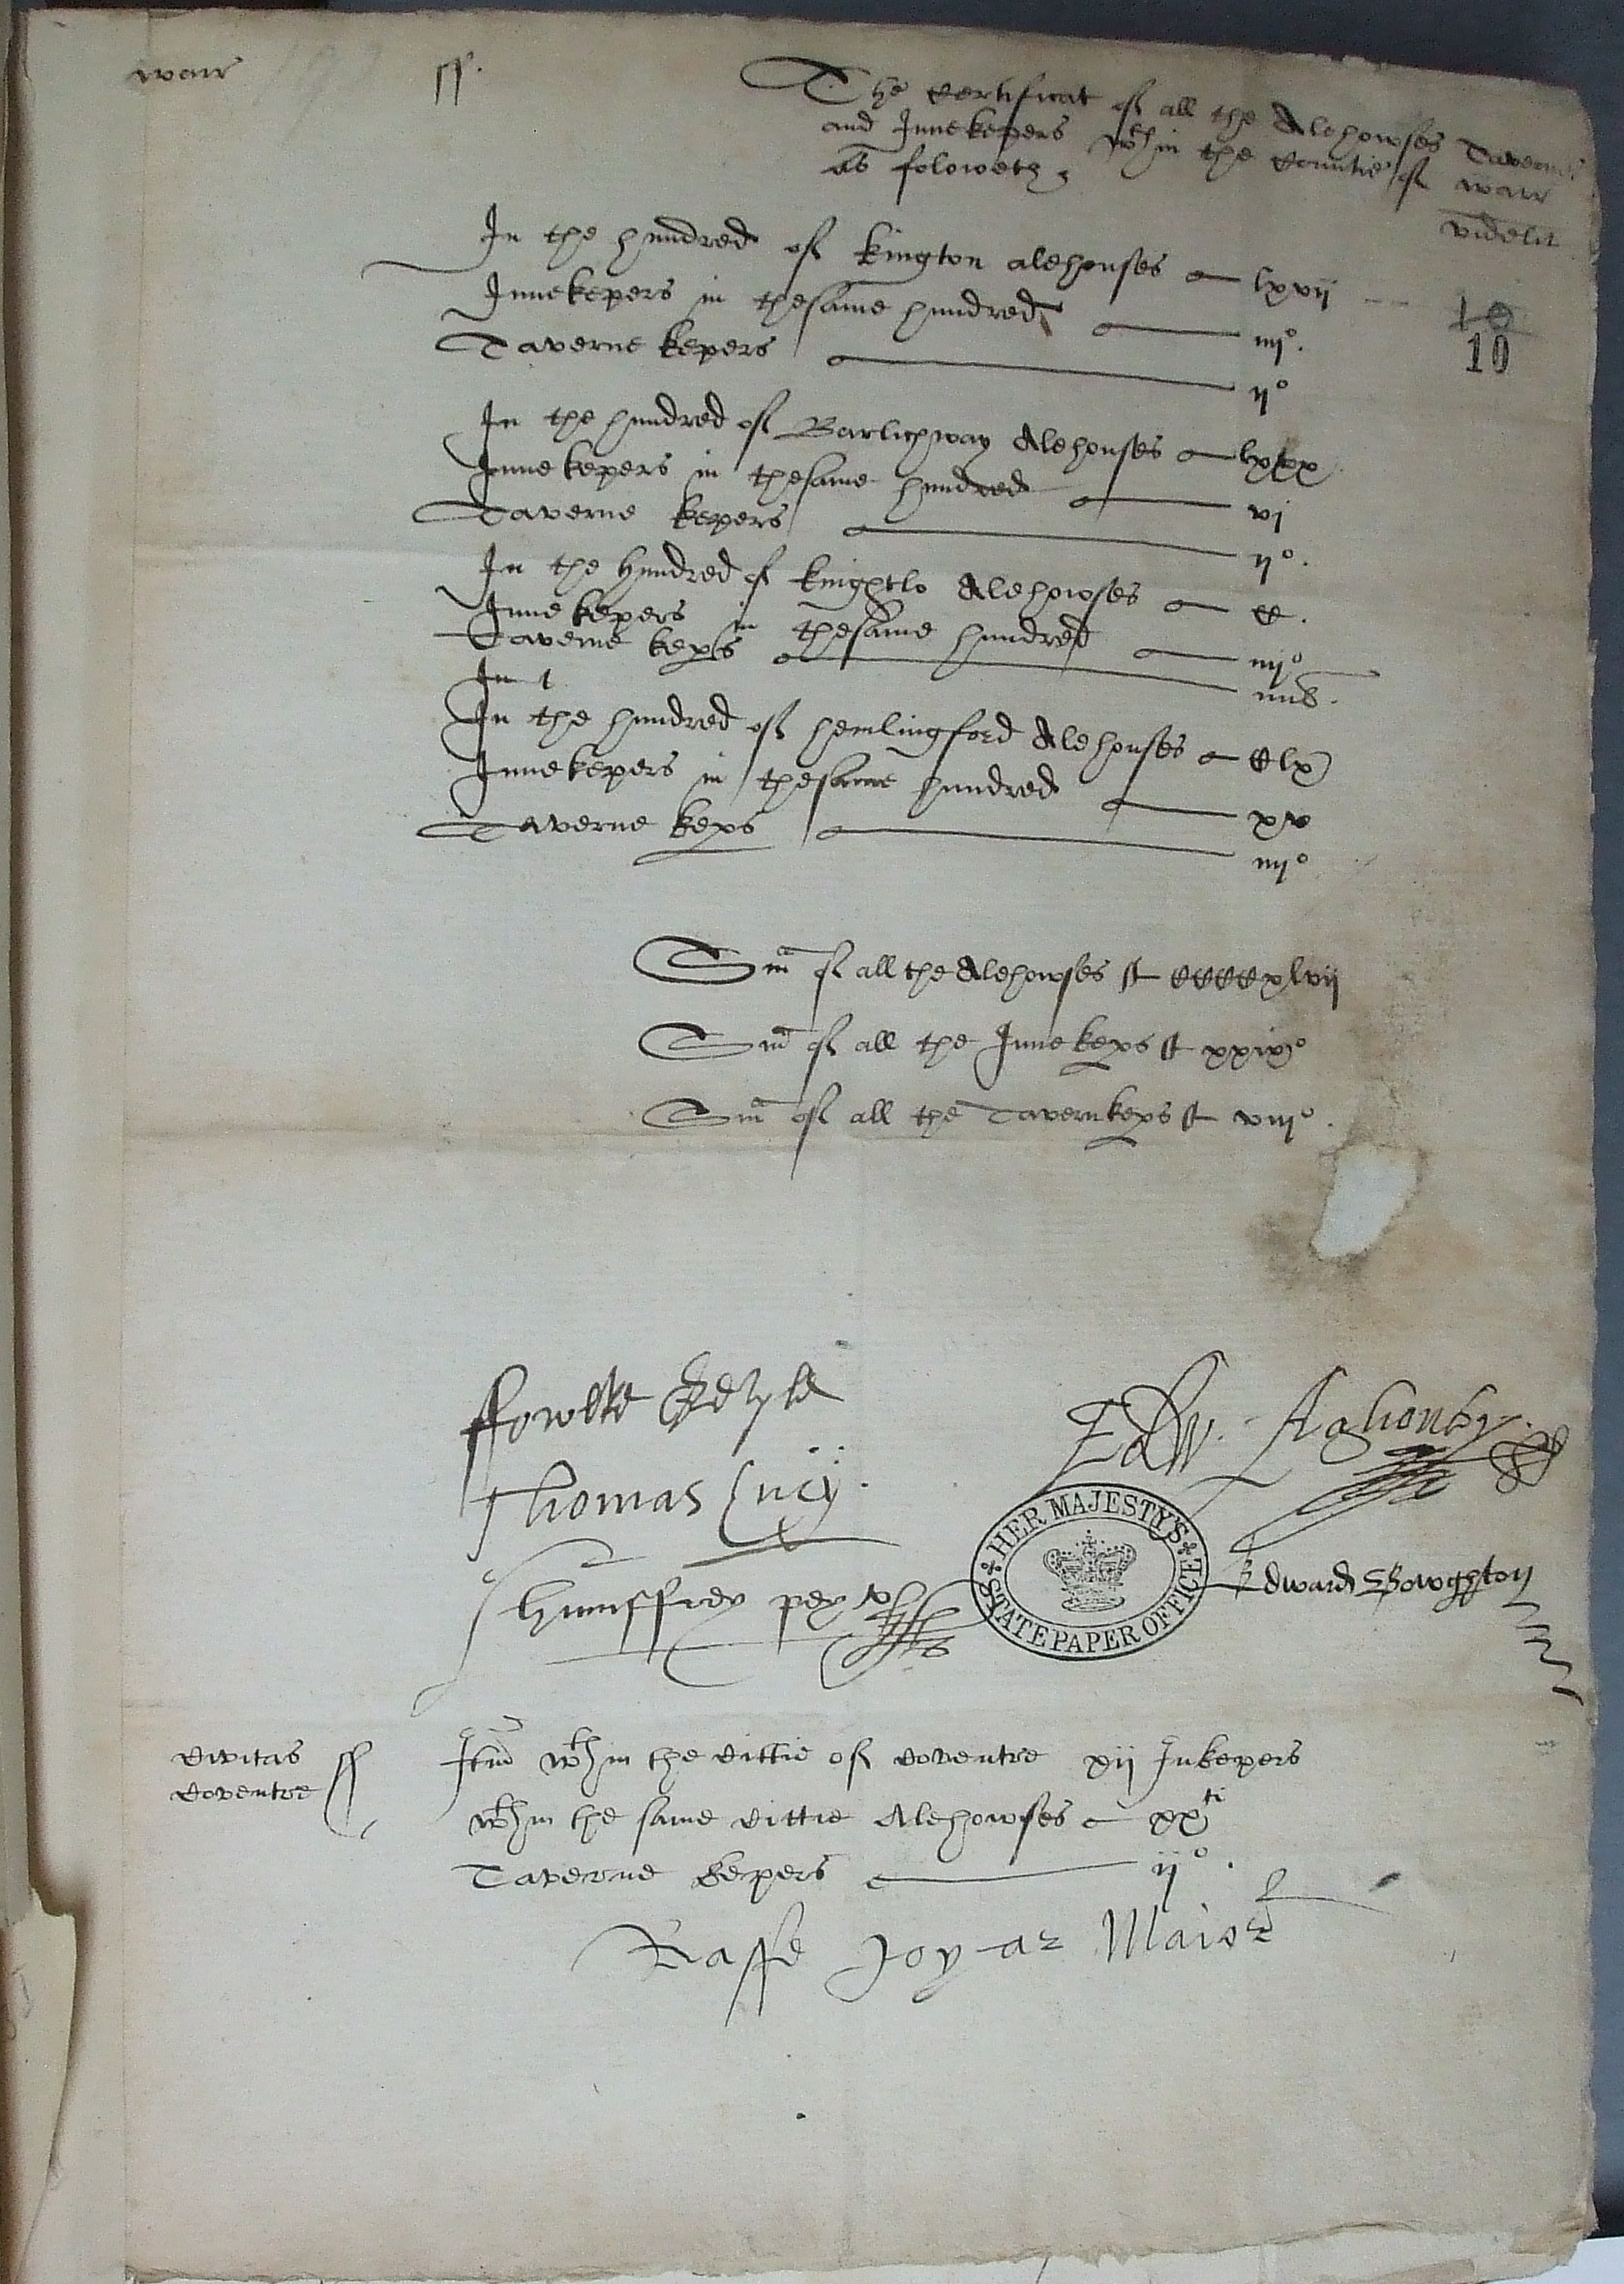 warr ss. The certificat of all the Alehowses Taverns
and Innekepers wthin the countie of warr
as foloweth videlit
In the hundred of kington alehouses lxvij
Innekepers in thesame hundred iiijo.
Taverne kepers ijo
10
10
In the hundred of Barlichway Alehouses lxxx
Innekepers in thesame hundred vj
Taverne kepers ijo.
In the hundred of knightlo Alehowses C.
Innekepers in thesame hundred iiijo
Taverne keps nus.
In t
In the hundred of hemlingford Alehouses Clx
Innekepers in thesame hundred xv
Taverne keps iiijo
Sma of all the Alehowses st CCCCxlvij
Sma of all the Innekeps st xxixo
Sma of all the Tavernkeps st viijo.
ffowlke Grevyle
Edw. Aglionby.
Thomas Lucy.
HER MAJESTY'S STATE PAPER OFFICE
Humffrey
Edward Bowghton
Civitas Coventre ss
Itm wthin the Cittie of Coventre xij Inkepers
wthin the same Cittie Alehowses xxti
Taverne kepers ijo.
Raffe Joyar Maior